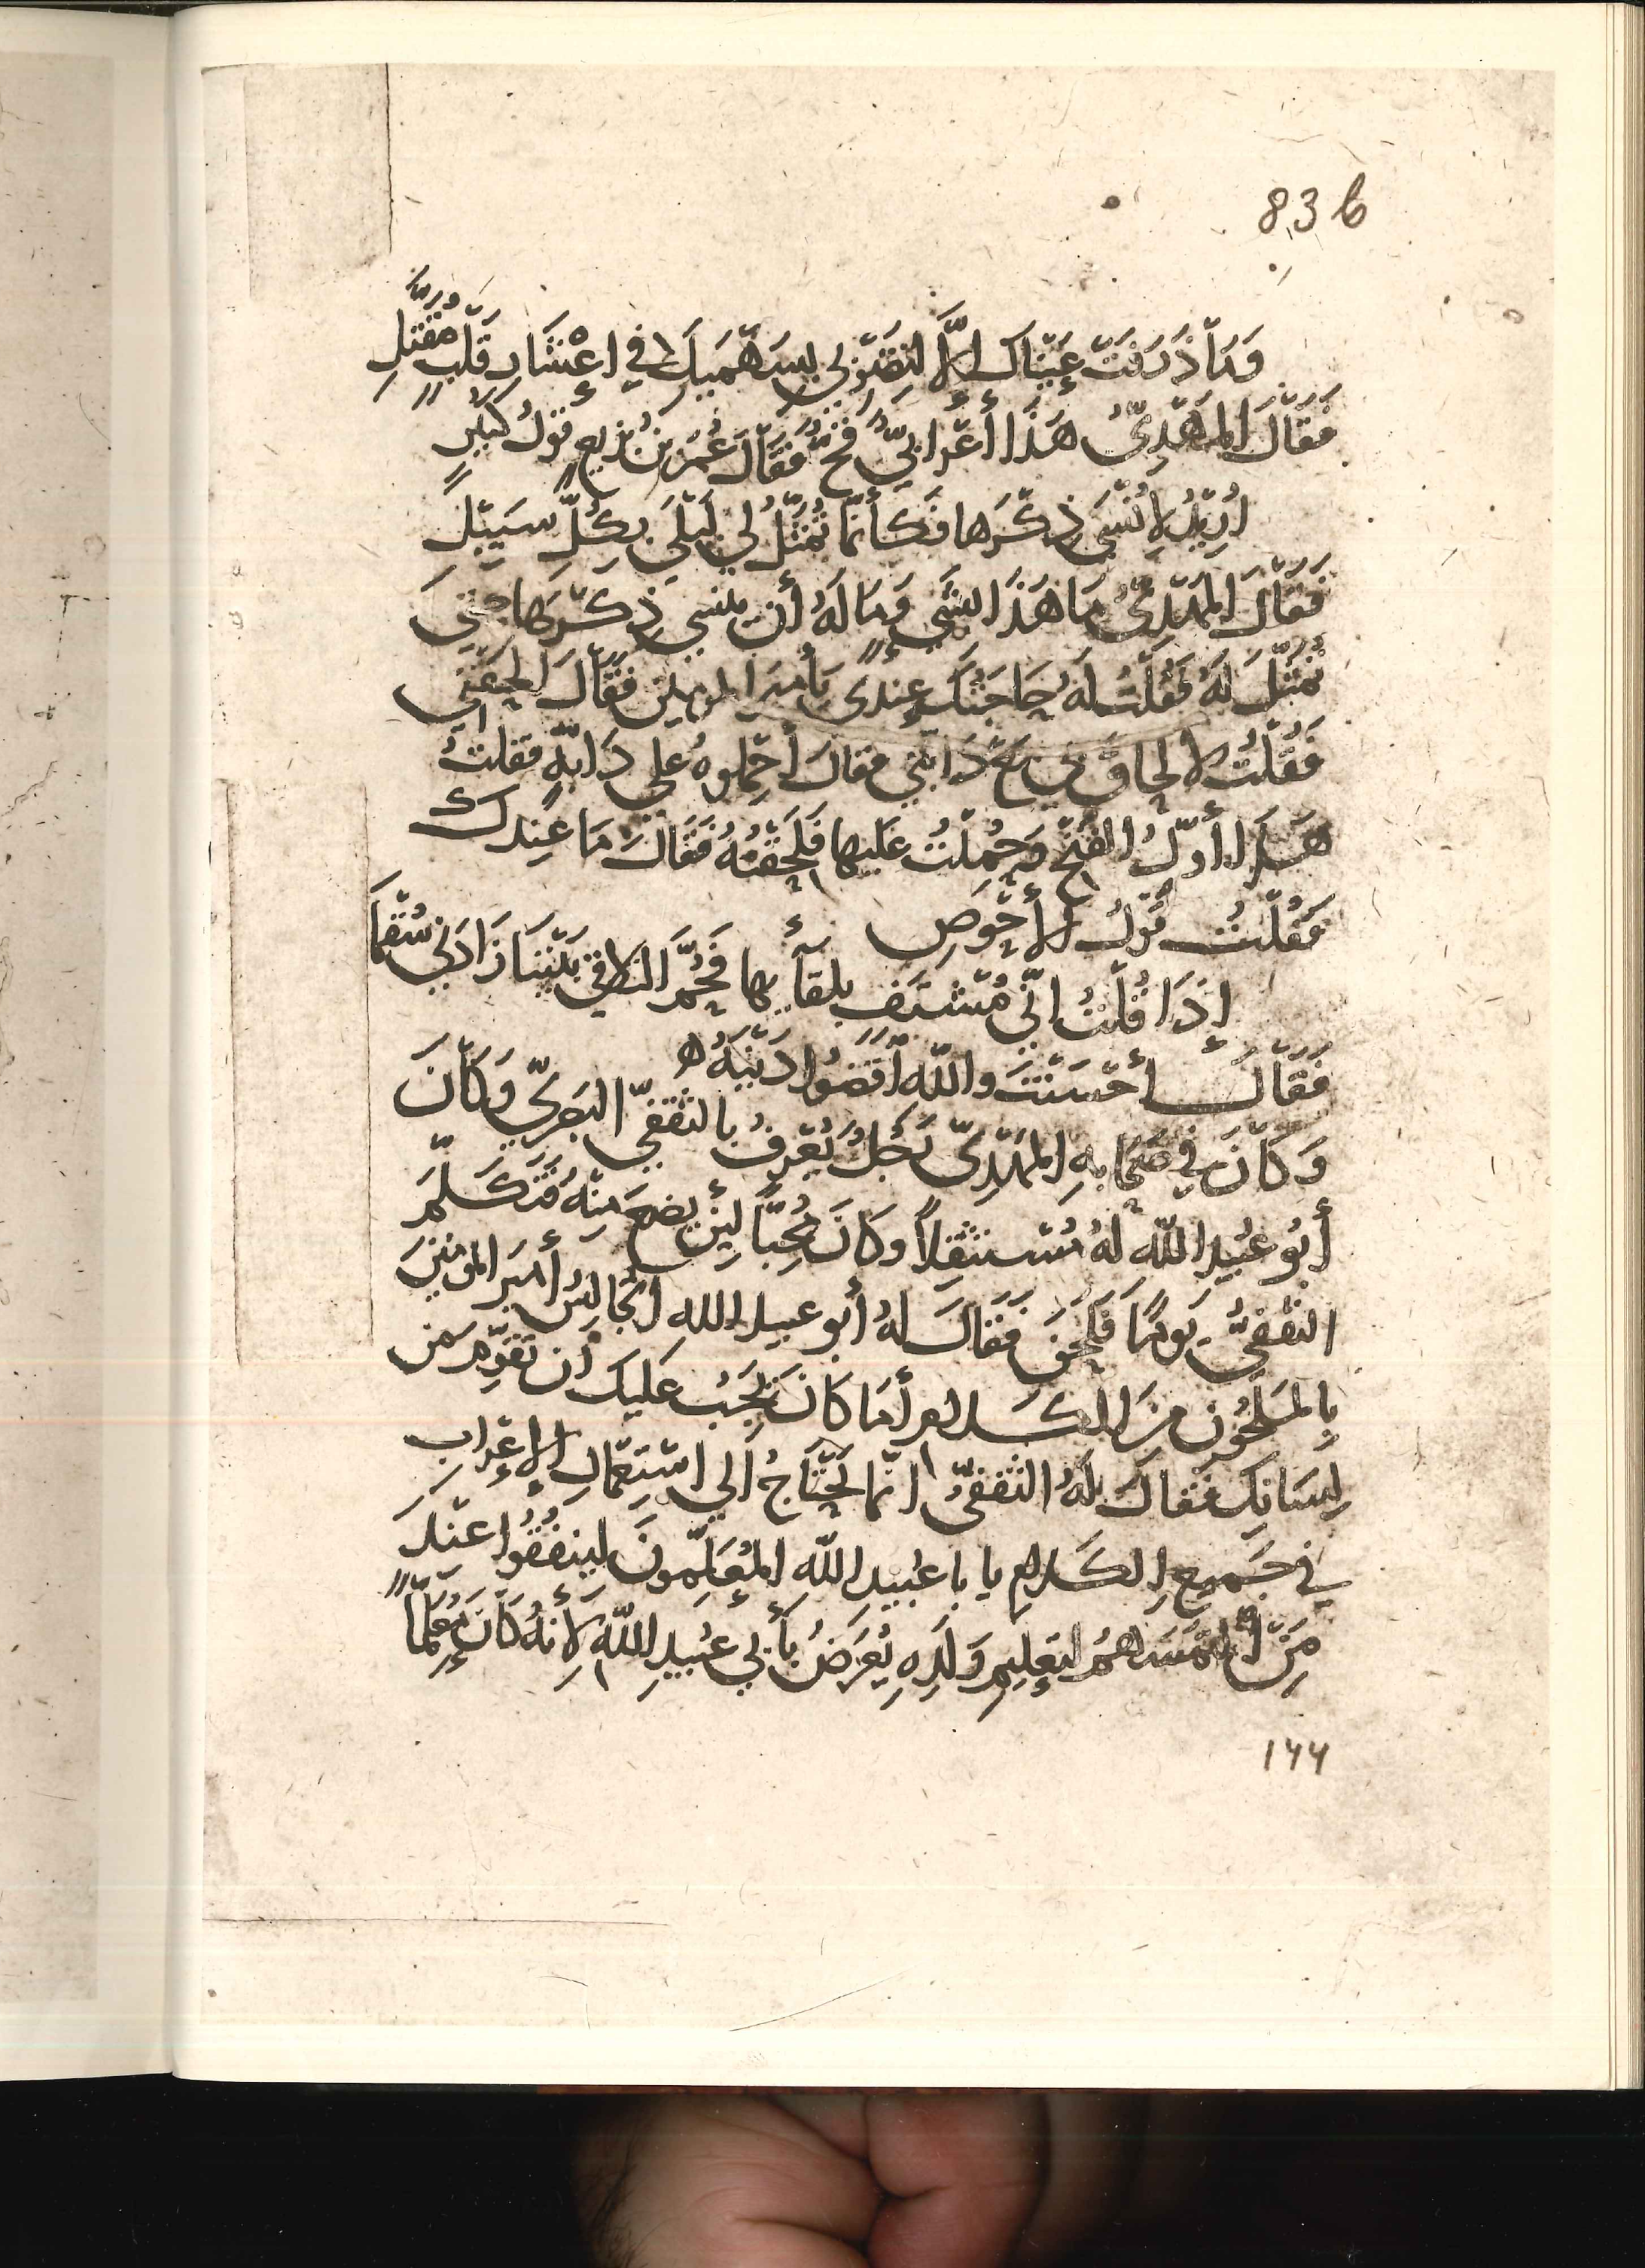 83b
وَمَا ذَرَفَتْ عَيْنَاك إلَّا لِتَضْرِبِي بِسَهْمَيْكِ في إعْشَارِ قَلْبٍ مُقَتَّلِ
فَقَالَ المَهْدِيُّ هَذَا أَعْرَابيٌّ قُحٌّ فَقَالَ عُمَرُ بْنُ بَزِيعٍ قَوْلُ كُثَيِّرٍ
اُرِيْدُ لِأنْسَى ذِكْرَهَا فَكَأَنَّمَا تُمَثَّلُ لي لَيْلَى بِكُلِّ سَبِيْلِ
فَقَالَ المَهْدِيُّ مَا هَذَا بشَيءٍ وَمَا لَهُ أن ينسي ذِكْرَهَا حتي
تُمَثَّلَ لَهُ فَقُلْتُ لَهُ حَاجَتُكَ عِندى يَا أميرَ المومنين فَقَالَ الحَقْنِي
فَقُلْتُ لا لحَاقَ بي مَعْ دَابَّتِي فقال أَحْمِلوهُ علي دَابَّةٍ فقلتُ
هَذا أوَّلُ الفَتْحِ وَحُمِلْتُ عَليها فَلَحِقْتُهُ فَقَالَ مَا عِندك
فَقُلْتُ قَوْلُ الأَحْوَصِ
إذَا قُلْتُ إنِّي مُشْتَفٍ بلقائها فَحُمَّ التلاقي بَيْنَنَا زَادَني سُقْمَا
فَقَالَ أحْسَنْتَ واللهِ أقْضُوا دَيْنَهُ ه
وَكَانَ في صَحَابةِ المَهْدِيِّ رَجُلٌ يُعْرَفُ بالثقفيِّ البَصْرِيِّ وَكَانَ
أبُو عُبيدِ اللهِ لَهُ مُسْتَثْقِلاً وكَانَ مُحِبًّا لِيَنْ يضعَ مِنْهُ فَتَكَلَّمَ
الثقفيُّ يَومًا فَلَحَنَ فَقَالَ لهُ أبو عبيد اللهِ أتُجَالِسُ أميرَ المومنينَ
بِالمَلْحُونِ مِنَ الكَلام أمَا كَانَ يَجِبُ عَليكَ أن تقَوِّم مِن
لِسَانِك فقالَ لَهُ الثقفيُّ إنَّما يَحْتَاجُ إلي اسْتِعْمالِ الإعْرَابِ
في جَميعِ الكَلامِ يا با عُبيدِ اللهِ المُعَلِّمُونَ لينفُقُوا عِنْدَ
مَنْ الْتَمَسَهُمُ لتعليمِ وَلَدِهِ يُعَرِّضُ بأبي عُبيدِ اللهِ لأنهُ كَانَ مُعَلِّمًا
١٦٦